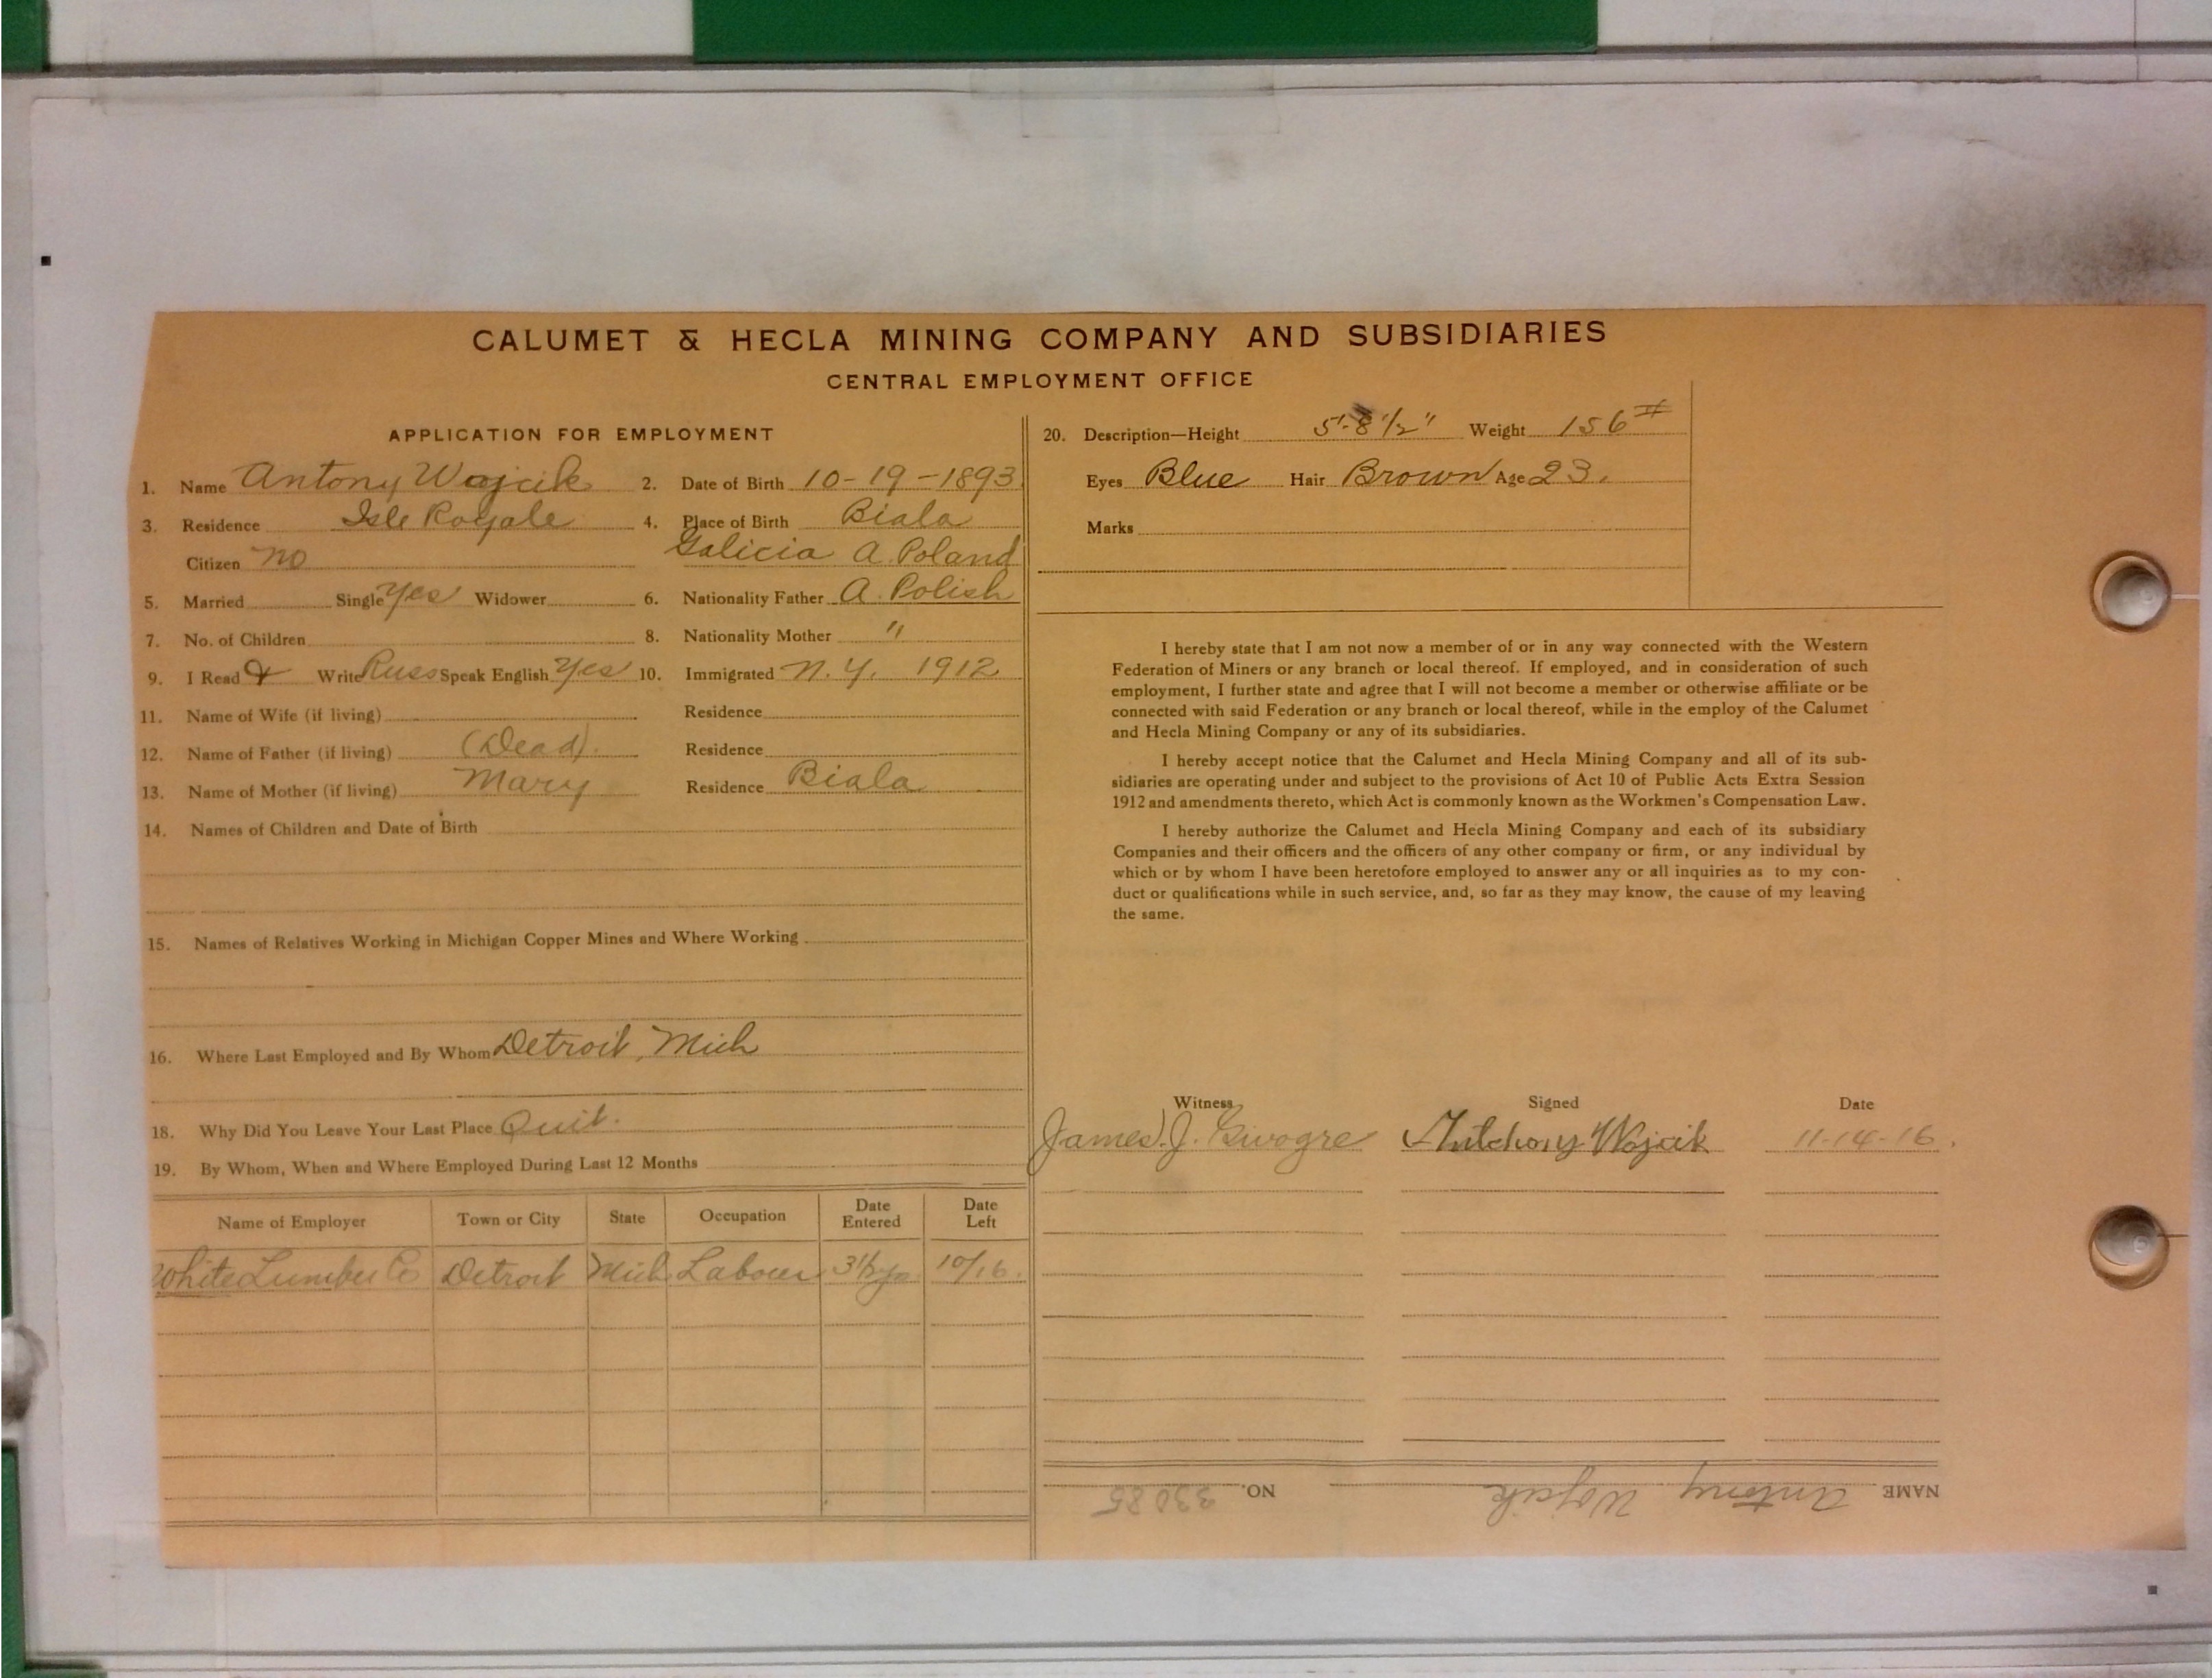 CALUMET & HECLA MINING COMPANY AND SUBSIDIARIES
CENTRAL EMPLOYMENT OFFICE
APPLICATION FOR EMPLOYMENT
1. Name Antony Wojcik 2. Date of Birth 10-19-1893
3. Residence Isle Royale 4. Place of Birth Biala
Citizen no Galicia A. Poland
5. Married Single Yes Widower 6. Nationality Father A. Polish
7. No. of Children 8. Nationality Mother "
9. I Read & Write Russ Speak English Yes 10. Immigrated N.Y. 1912
11. Name of Wife (if living) Residence
12. Name of Father (if living) (Dead). Residence
13. Name of Mother (if living) Mary Residence Biala
14. Names of Children and Date of Birth
15. Names of Relatives Working in Michigan Copper Mines and Where Working
16. Where Last Employed and By Whom Detroit, Mich
18. Why Did You Leave Your Last Place Quit.
19. By Whom, When and Where Employed During Last 12 Months
Name of Employer Town or City State Occupation Date Entered Date Left
White Lumber Co Detroit Mich Labourer 3 1/2 yrs. 10/16.
20. Description—Height 5'-8 1/2" Weight 156#
Eyes Blue Hair Brown Age 23.
Marks
I hereby state that I am not now a member of or in any way connected with the Western
Federation of Miners or any branch or local thereof. If employed, and in consideration of such
employment, I further state and agree that I will not become a member or otherwise affiliate or be
connected with said Federation or any branch or local thereof, while in the employ of the Calumet
and Hecla Mining Company or any of its subsidiaries.
I hereby accept notice that the Calumet and Hecla Mining Company and all of its sub-
sidiaries are operating under and subject to the provisions of Act 10 of Public Acts Extra Session
1912 and amendments thereto, which Act is commonly known as the Workmen's Compensation Law.
I hereby authorize the Calumet and Hecla Mining Company and each of its subsidiary
Companies and their officers and the officers of any other company or firm, or any individual by
which or by whom I have been heretofore employed to answer any or all inquiries as to my con-
duct or qualifications while in such service, and, so far as they may know, the cause of my leaving
the same.
Witness Signed Date
James J. Antchony Wojcik 11-14-16.
NAME Antony Wojcik NO. 33085